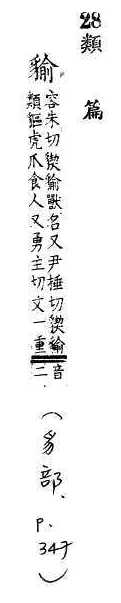 28 類篇
貐。
容朱切䝟貐獸名又尹棰切䝟貐音
類貙虎爪食人又勇主切文一重二
(豸部、p. 347)